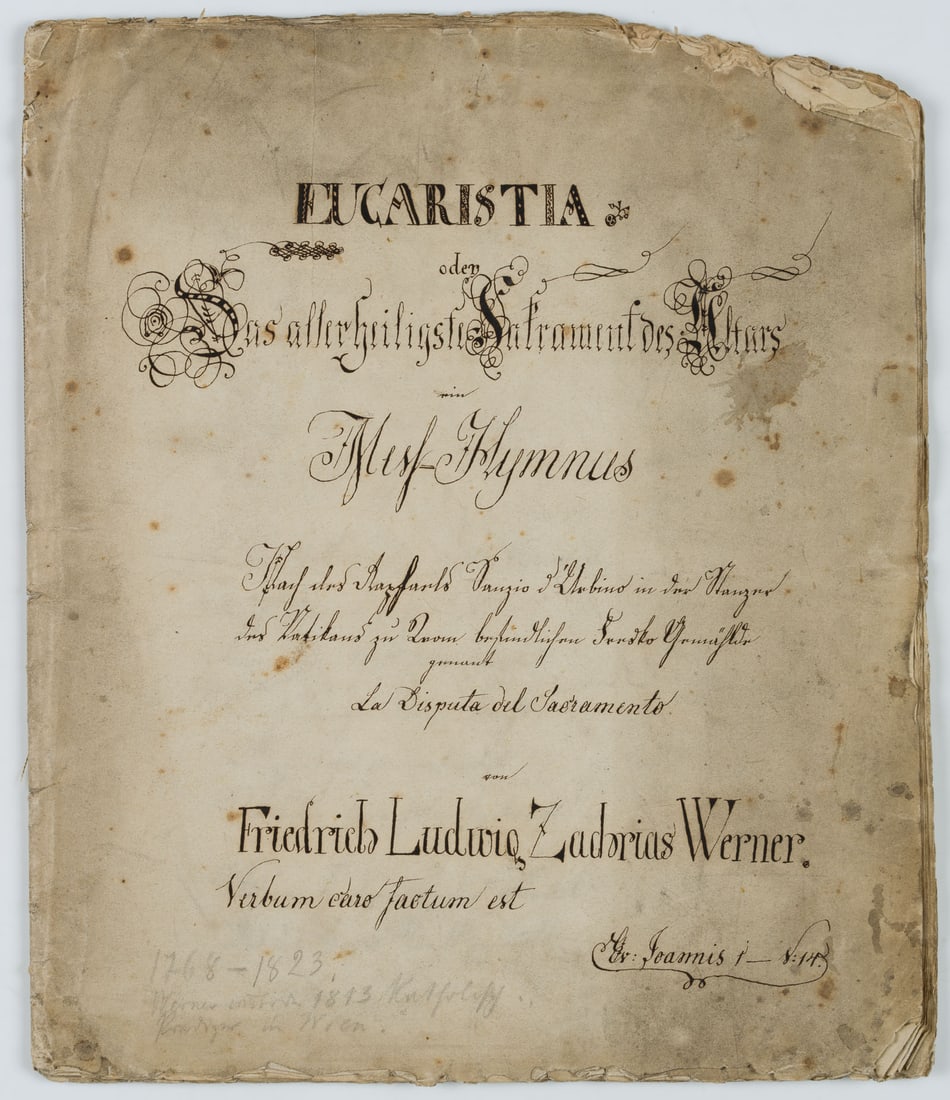 EUCARISTIA
oder
Das allerheiligste Sakrament des Altars
ein
Mess-Hymnus
Nach des Raphaels Sanzio d'Urbino in der Stanzen
des Vatikans zu Rom befindlichen Fresko Gemählde
genant
La Disputa del Sacramento.
von
Friedrich Ludwig Zachrias Werner.
Verbum caro factum est
Ev: Joannis 1 — V: 14.
1768 – 1823.
Werner 1813 Katholisch.
Prediger in Wien.